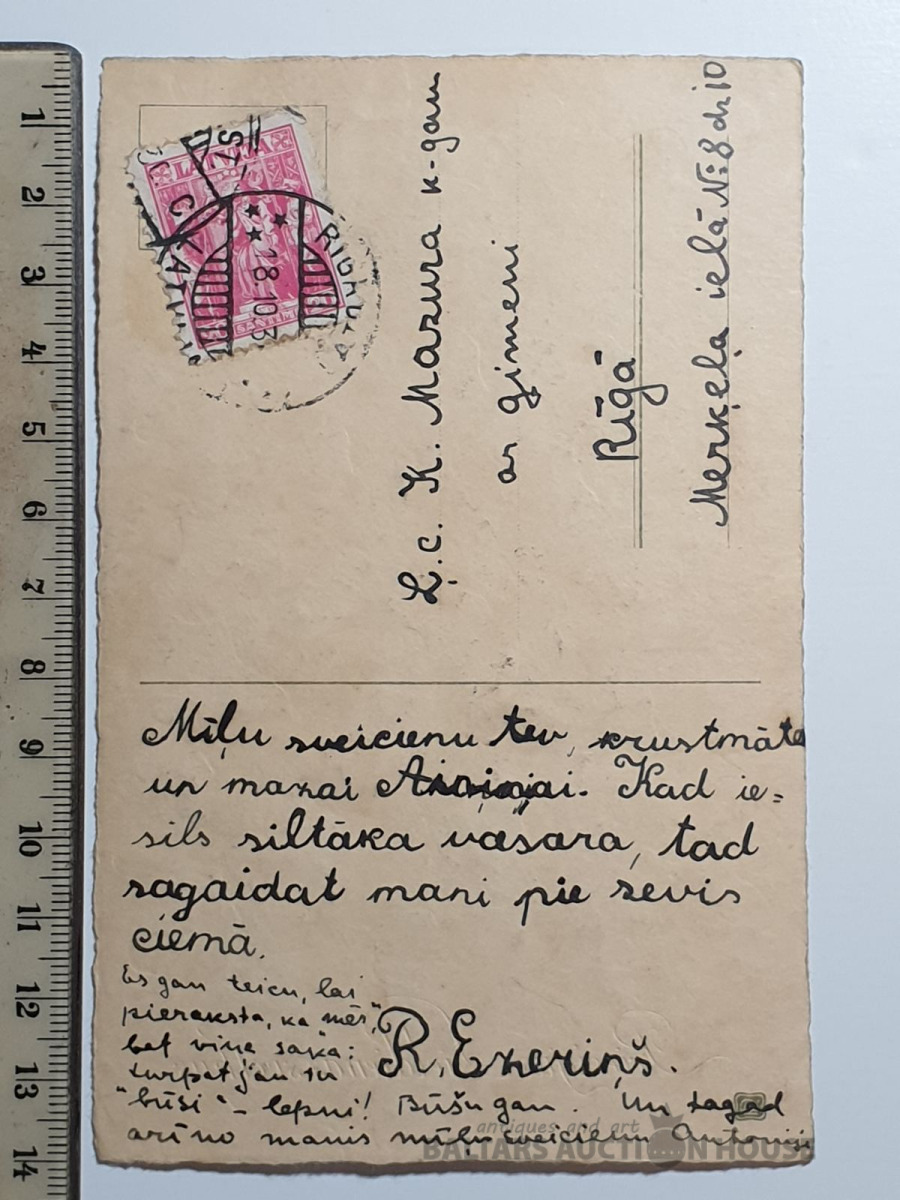 LATVIJA
SANTIMI
RIGA
18.10.3
Ļ.c. K. Mazura k-gam
ar ģimeni
Rīgā
Merķeļa ielā № 8 dz 10
Mīļu sveicienu tev, krustmāte
un mazai. Kad ie=
sils siltāka vasara, tad
sagaidat mani pie sevis
ciemā.
Es gan teicu, lai
pieraksta, ka "mēs",
bet viņa saka:
turpat jau tu
"būsi" – lepni! Būšu gan. Un tagad
arī no manis mīļu sveicienu Antonija
R. Ezeriņš.
antiques and art
BALTARS AUCTION HOUSE
1
2
3
4
5
6
7
8
9
10
11
12
13
14